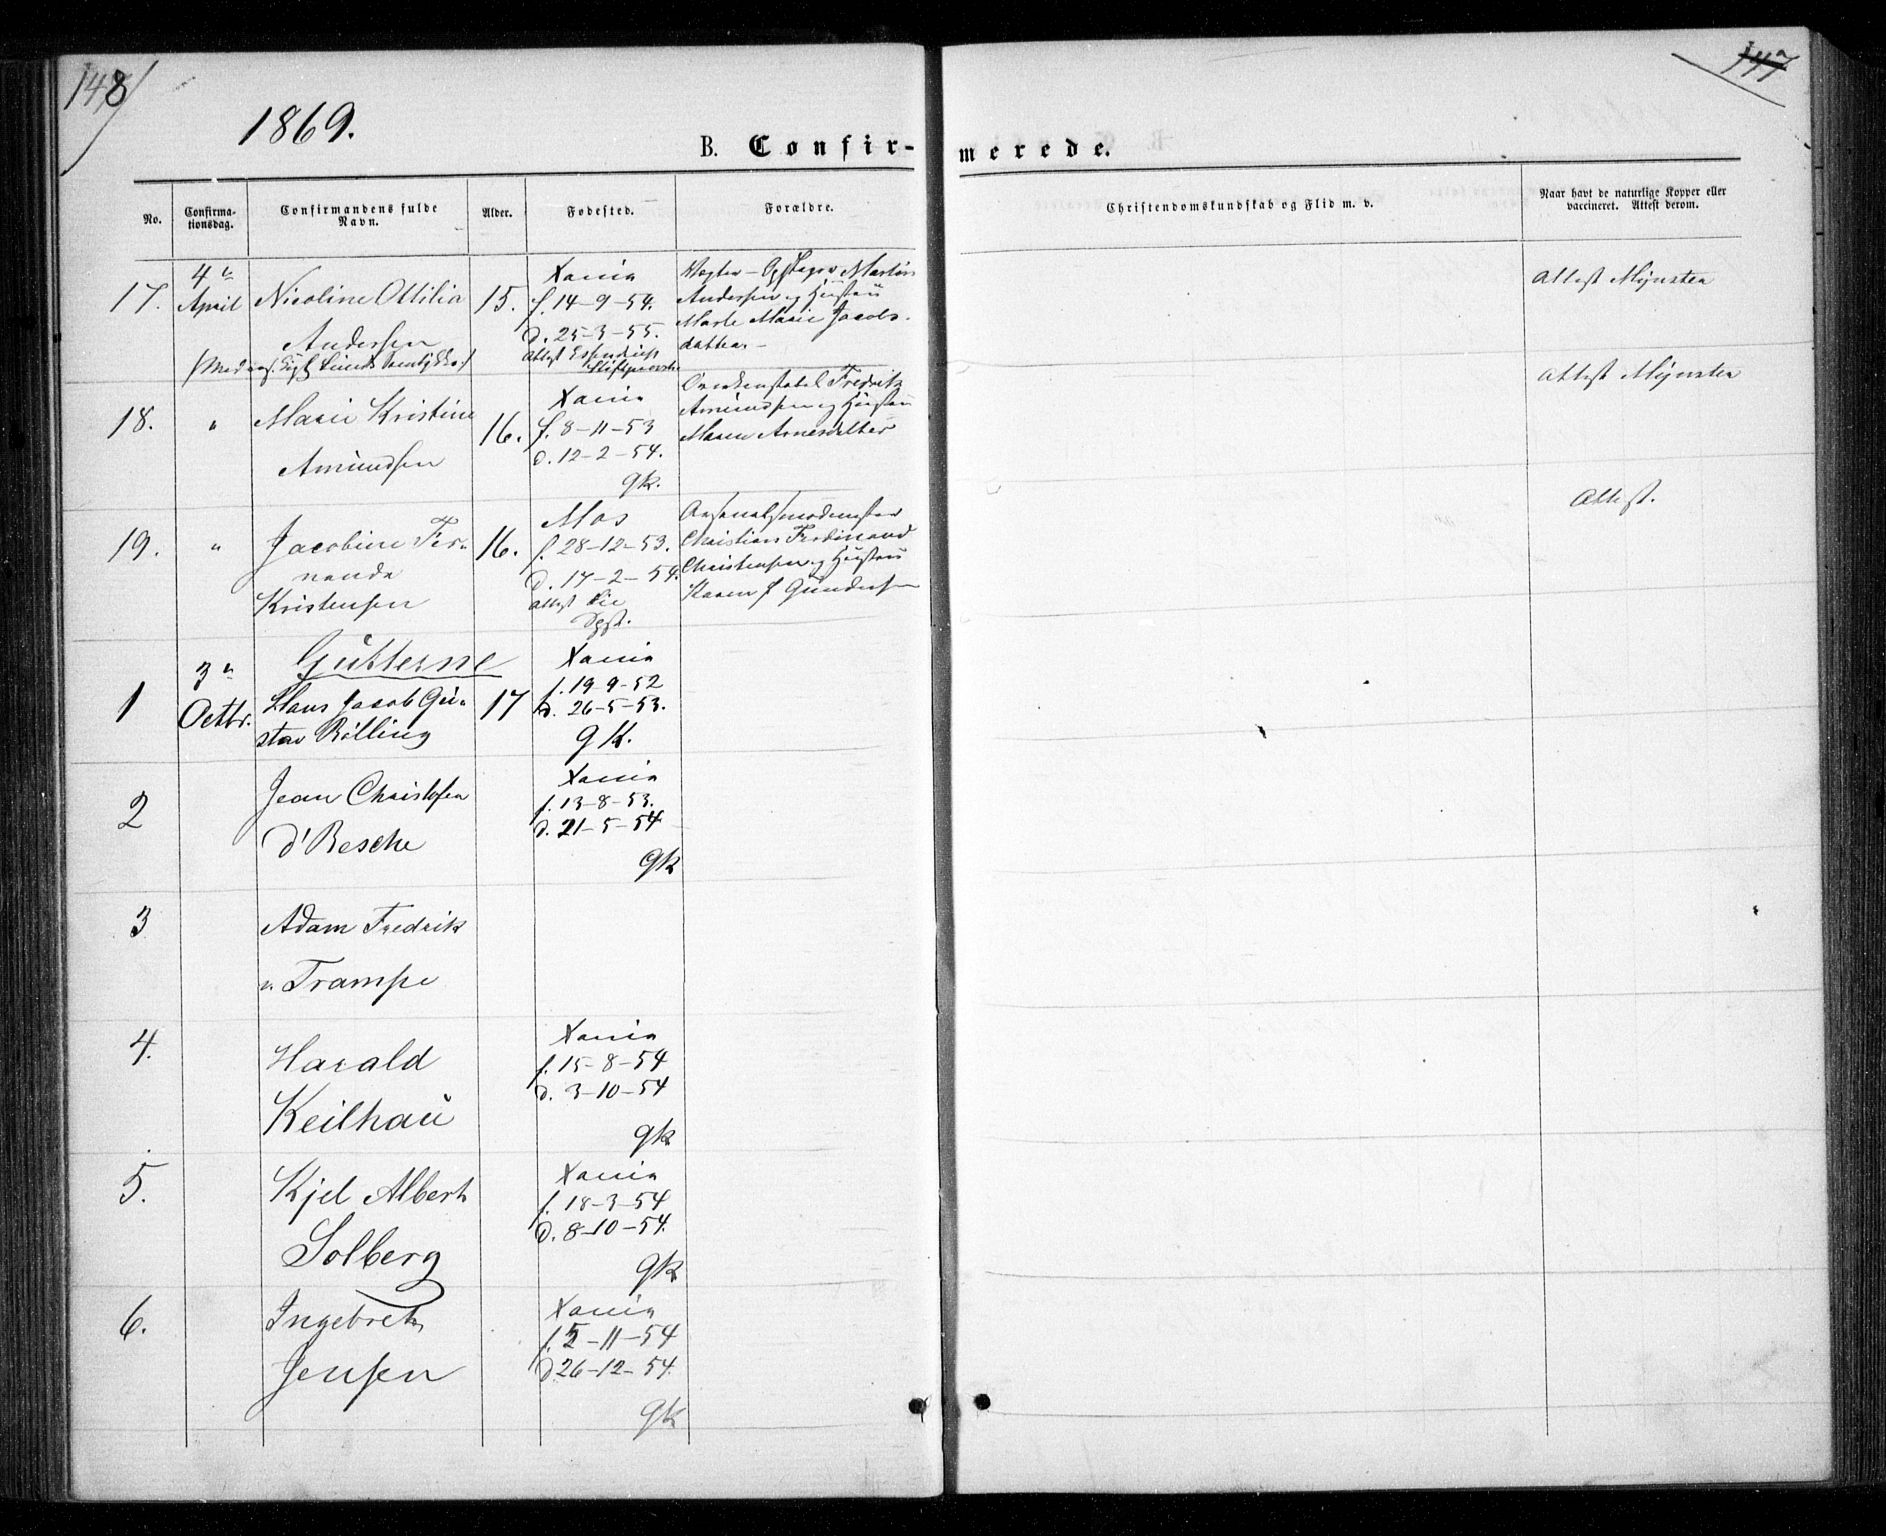 148
147
1869.
B. Confir-
merede.
No.
Confirma-
tionsdag.
Confirmandens fulde
Navn.
Alder.
Fødested.
Forældre.
Christendomskundskab og Flid m. v.
Naar havt de naturlige Kopper eller
vaccineret. Attest derom.
17.
4
April
Nicoline Ottilia
Andersen
15.
Xania
f. 14-9-54.
d. 25-3-55.
Attest
Martin
Andersen og Hustru
Marte Marie Jacobs-
datter
Attest Mynster
18.
"
Marie Kristine
Amundsen
16.
Xania
f. 8-11-53
d. 12-2-54.
gk.
Fredrik
Amundsen og Hustru
Maren Arnesdatter
Attest Mynster
19.
"
Jacobine Fer-
nanda
Kristensen
16.
Mos
f. 28-12-53.
d. 17-2-54.
Attest
Christian Ferdinand
Christensen og Hustru
Karen J Gundersen
Attest.
Gutterne
1
3
Octbr.
Hans Jacob Gu-
stav Rolling
17
Xania
f. 19-9-52
d. 26-5-53.
gk.
2
Jean Christofer
d'Besche
Xania
f. 13-8-53.
d. 21-5-54
gk
3
Adam Fredrik
v. Trampe
4.
Harald
Keilhau
Xania
f. 15-8-54
d. 3-10-54
gk
5.
Kjel Albert
Solberg
Xania
f. 18-3-54
d. 8-10-54.
gk
6.
Ingebret
Jensen
Xania
f. 5-11-54
d 26-12-54.
gk